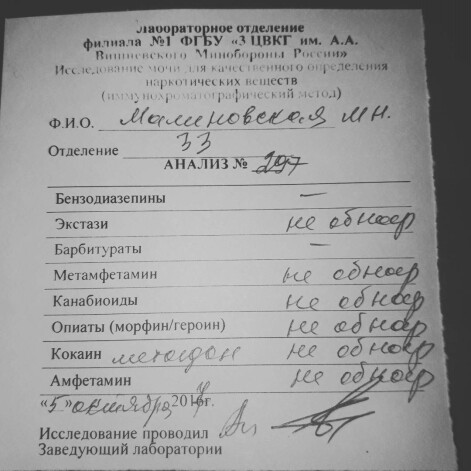 Лабораторное отделение
филиала №1 ФГБУ «3 ЦВКГ им. А.А.
Вишневского Минобороны России»
Исследование мочи для качественного определения
наркотических веществ
(иммунохроматографический метод)
Ф.И.О. Малиновская М Н.
Отделение 33
АНАЛИЗ № 297
Бензодиазепины –
Экстази не обнар
Барбитураты –
Метамфетамин не обнар
Канабиоиды не обнар
Опиаты (морфин/героин) не обнар
Кокаин метадон не обнар
Амфетамин не обнар
«5»октября 201 г.
Исследование проводил
Заведующий лаборатории